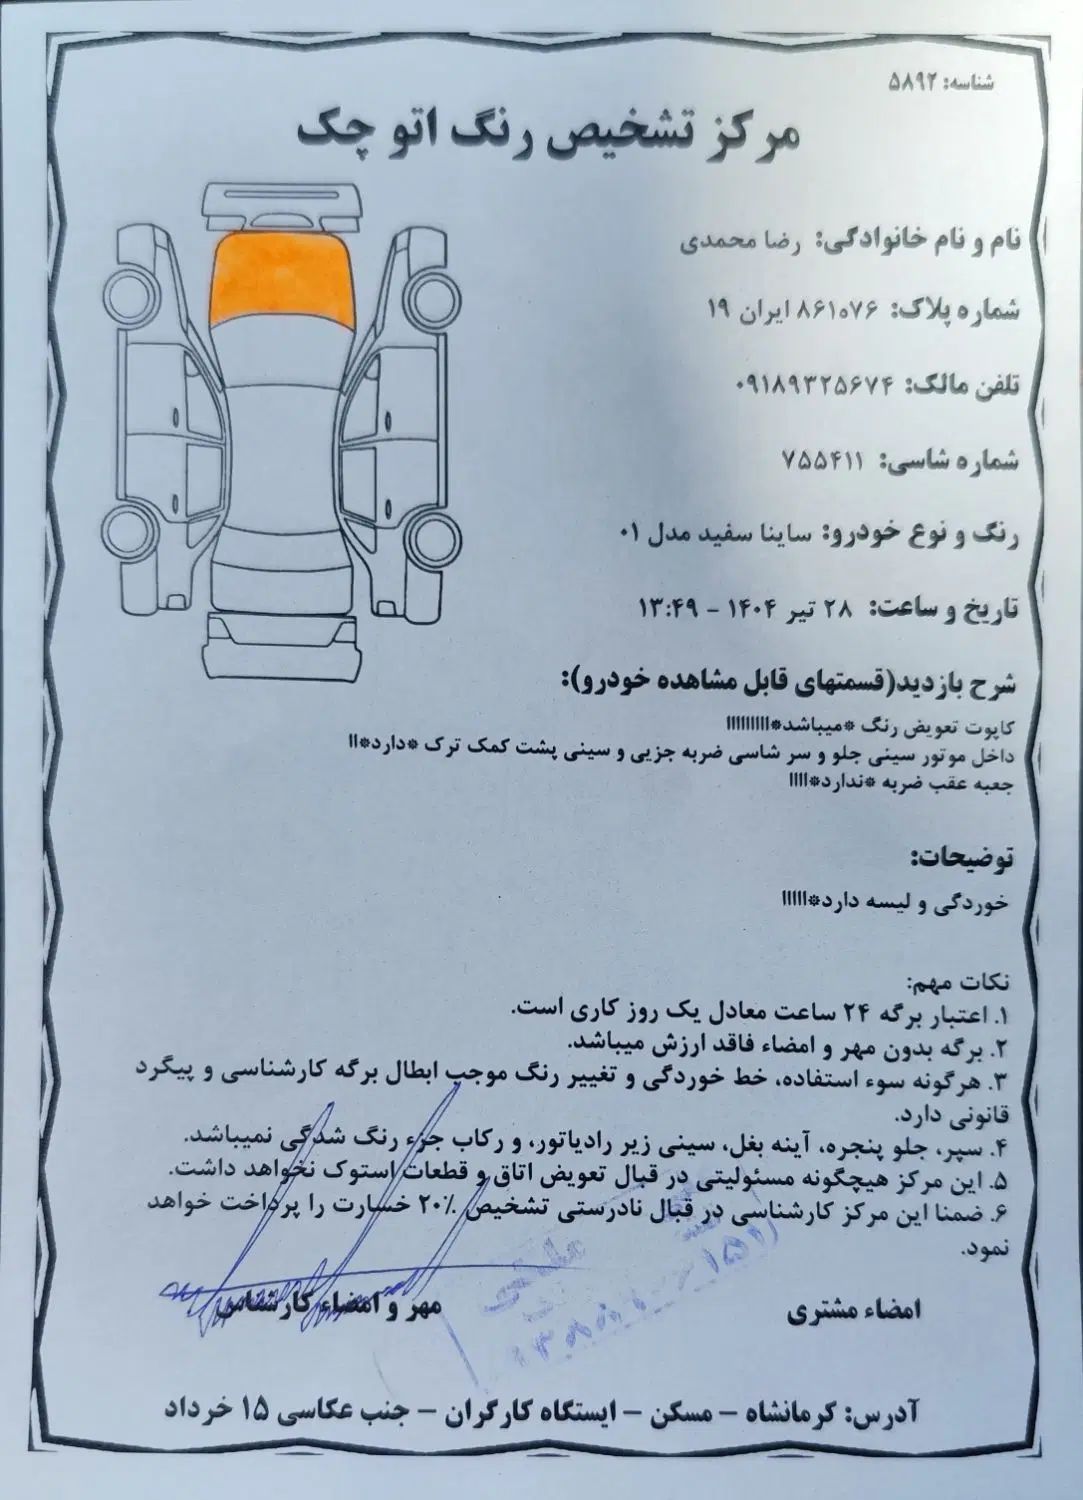 شناسه: ۵۸۹۲
مرکز تشخیص رنگ اتو چک
نام و نام خانوادگی: رضا محمدی
شماره پلاک: ۸۶۱۰۷۶ ایران ۱۹
تلفن مالک: ۰۹۱۸۹۳۲۵۶۷۴
شماره شاسی: ۷۵۵۴۱۱
رنگ و نوع خودرو: ساینا سفید مدل ۰۱
تاریخ و ساعت: ۲۸ تیر ۱۴۰۴ - ۱۳:۴۹
شرح بازدید(قسمتهای قابل مشاهده خودرو):
کاپوت تعویض رنگ *میباشد*||||||||||
داخل موتور سینی جلو و سر شاسی ضربه جزیی و سینی پشت کمک ترک *دارد*||
جعبه عقب ضربه *ندارد*||||
توضیحات:
خوردگی و لیسه دارد*|||||
نکات مهم:
۱. اعتبار برگه ۲۴ ساعت معادل یک روز کاری است.
۲. برگه بدون مهر و امضاء فاقد ارزش میباشد.
۳. هرگونه سوء استفاده، خط خوردگی و تغییر رنگ موجب ابطال برگه کارشناسی و پیگرد
قانونی دارد.
۴. سپر، جلو پنجره، آینه بغل، سینی زیر رادیاتور، و رکاب جزء رنگ شدگی نمیباشد.
۵. این مرکز هیچگونه مسئولیتی در قبال تعویض اتاق و قطعات استوک نخواهد داشت.
۶. ضمنا این مرکز کارشناسی در قبال نادرستی تشخیص ۲۰٪ خسارت را پرداخت خواهد
نمود.
امضاء مشتری
مهر و امضاء کارشناس
آدرس: کرمانشاه - مسکن - ایستگاه کارگران - جنب عکاسی ۱۵ خرداد